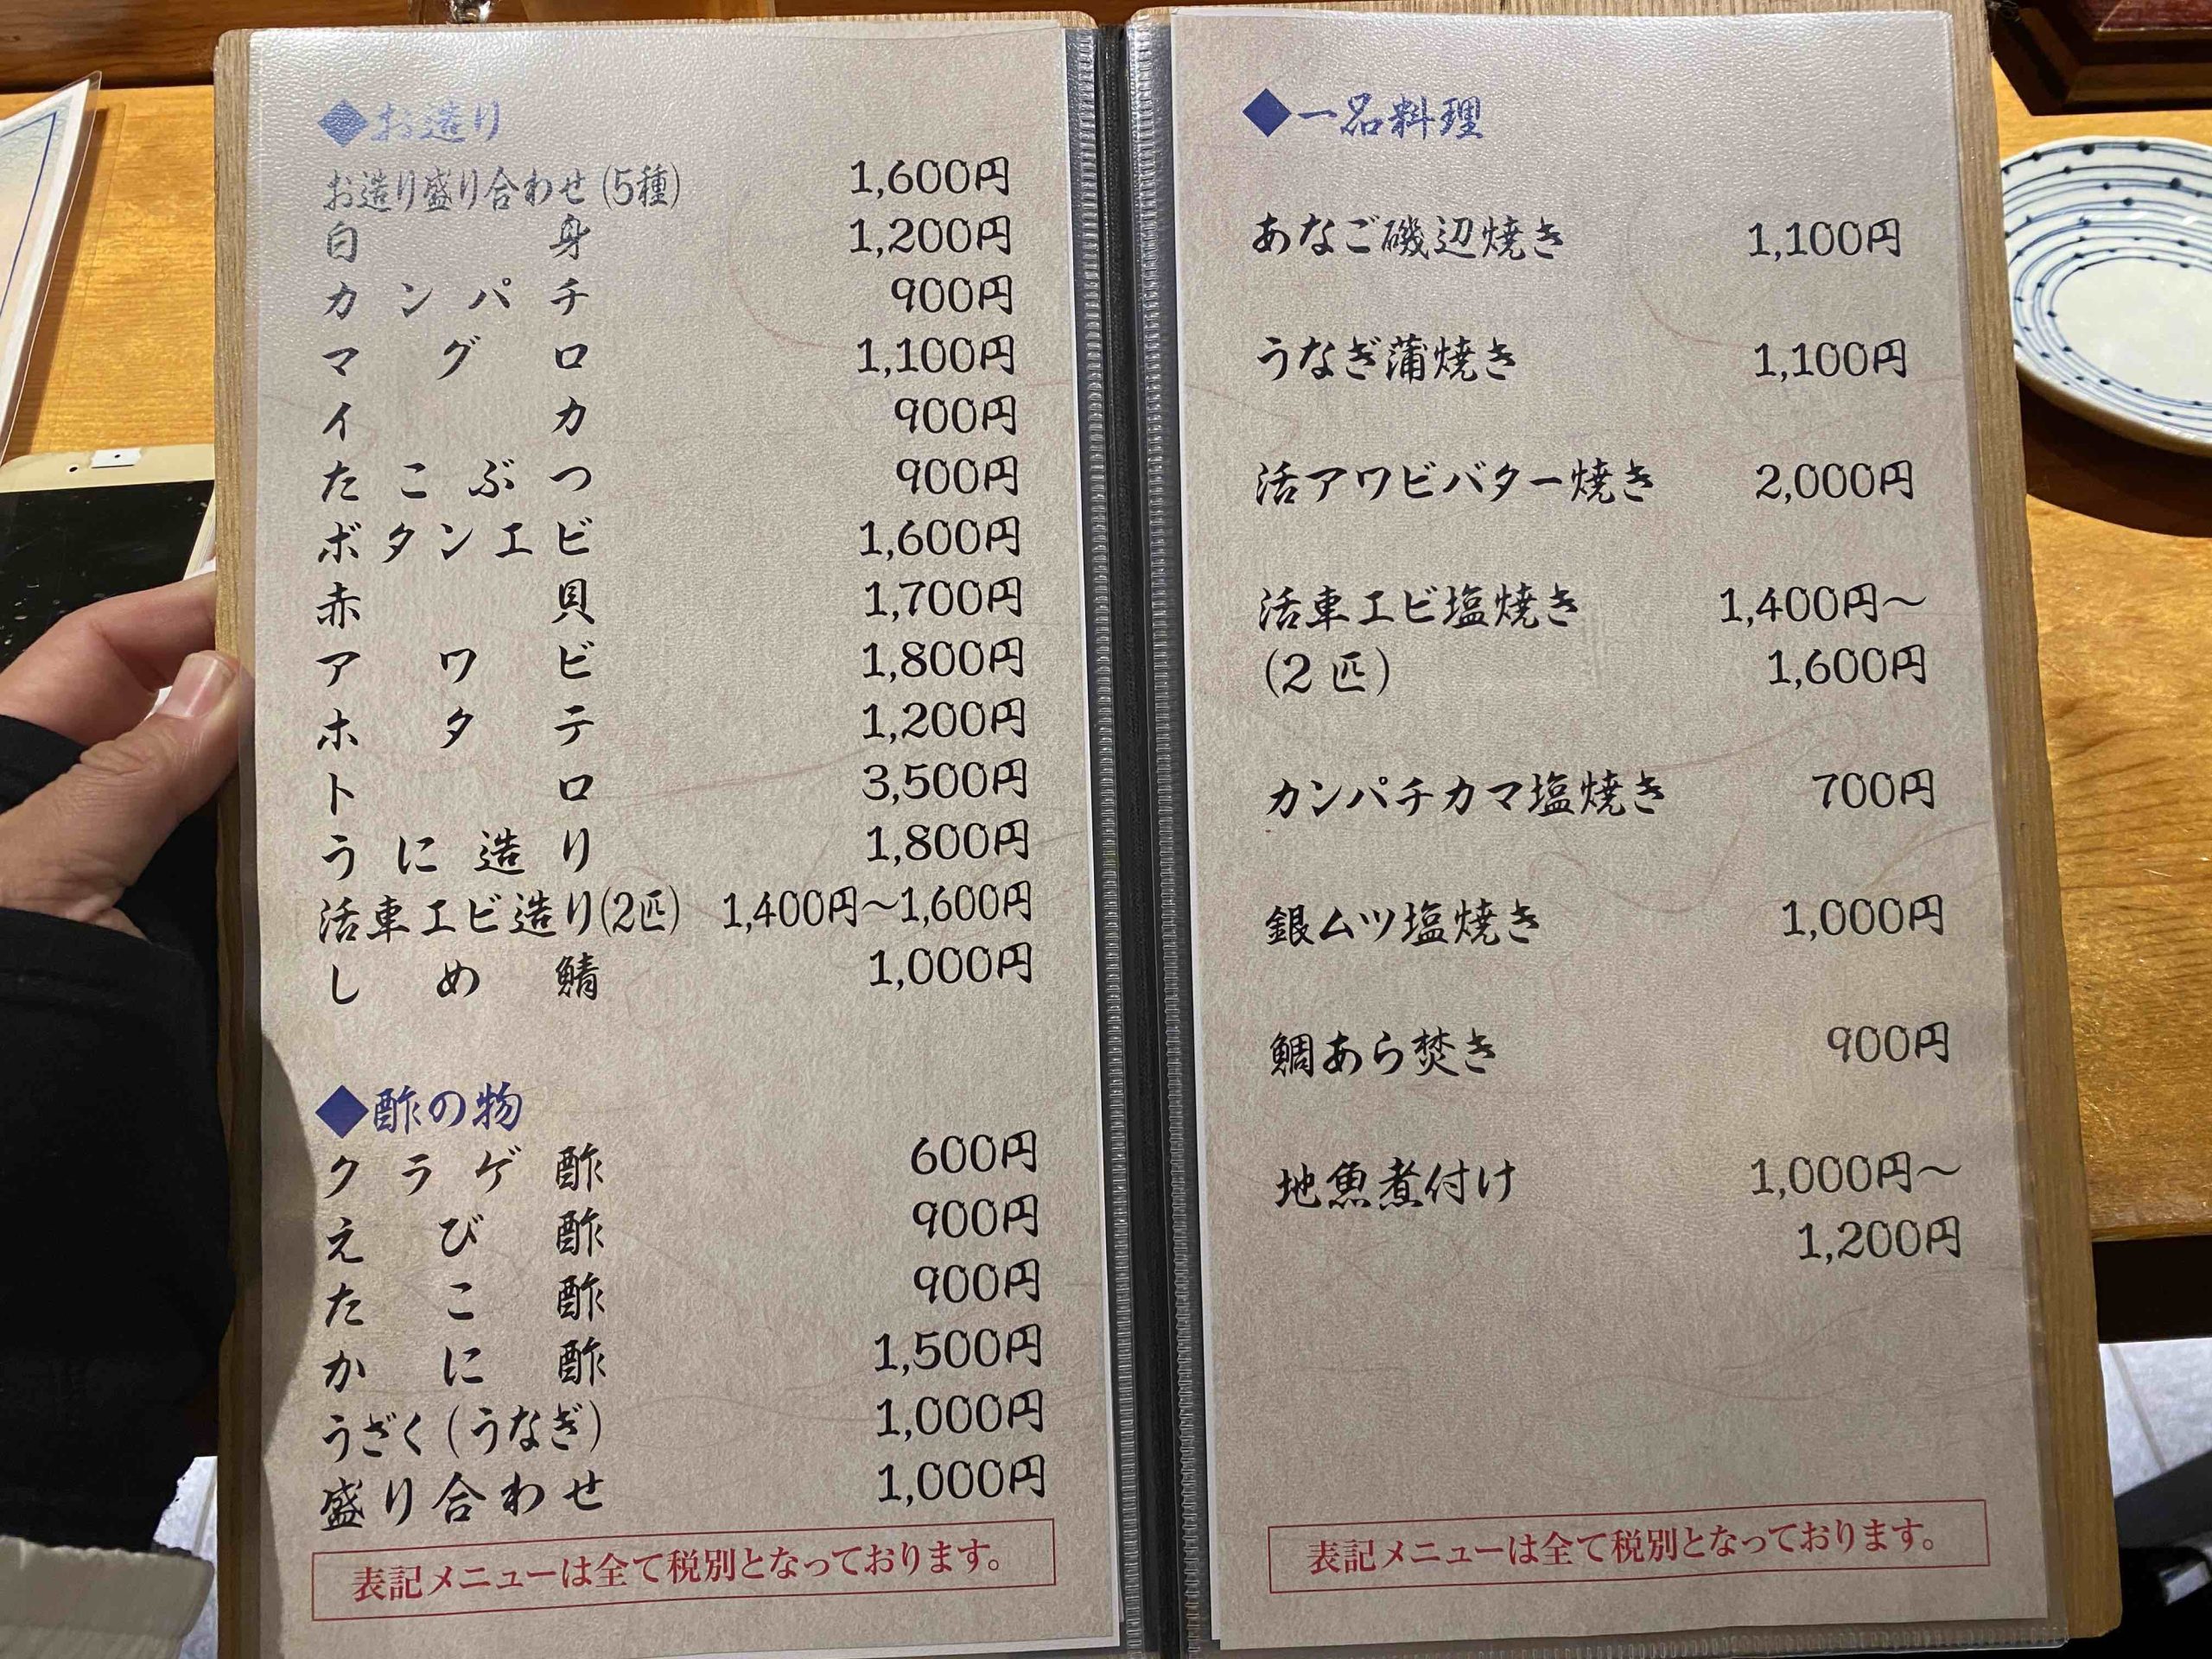 ◆お造り
お造り盛り合わせ(5種) 1,600円
白身 1,200円
カンパチ 900円
マグロ 1,100円
イカ 900円
たこぶつ 900円
ボタンエビ 1,600円
赤貝 1,700円
アワビ 1,800円
ホタテ 1,200円
トロ 3,500円
うに造り 1,800円
活車エビ造り(2匹) 1,400円～1,600円
しめ鯖 1,000円
◆酢の物
クラゲ酢 600円
えび酢 900円
たこ酢 900円
かに酢 1,500円
うざく(うなぎ) 1,000円
盛り合わせ 1,000円
表記メニューは全て税別となっております。
◆一品料理
あなご磯辺焼き 1,100円
うなぎ蒲焼き 1,100円
活アワビバター焼き 2,000円
活車エビ塩焼き 1,400円～
(2匹) 1,600円
カンパチカマ塩焼き 700円
銀ムツ塩焼き 1,000円
鯛あら焚き 900円
地魚煮付け 1,000円～
1,200円
表記メニューは全て税別となっております。